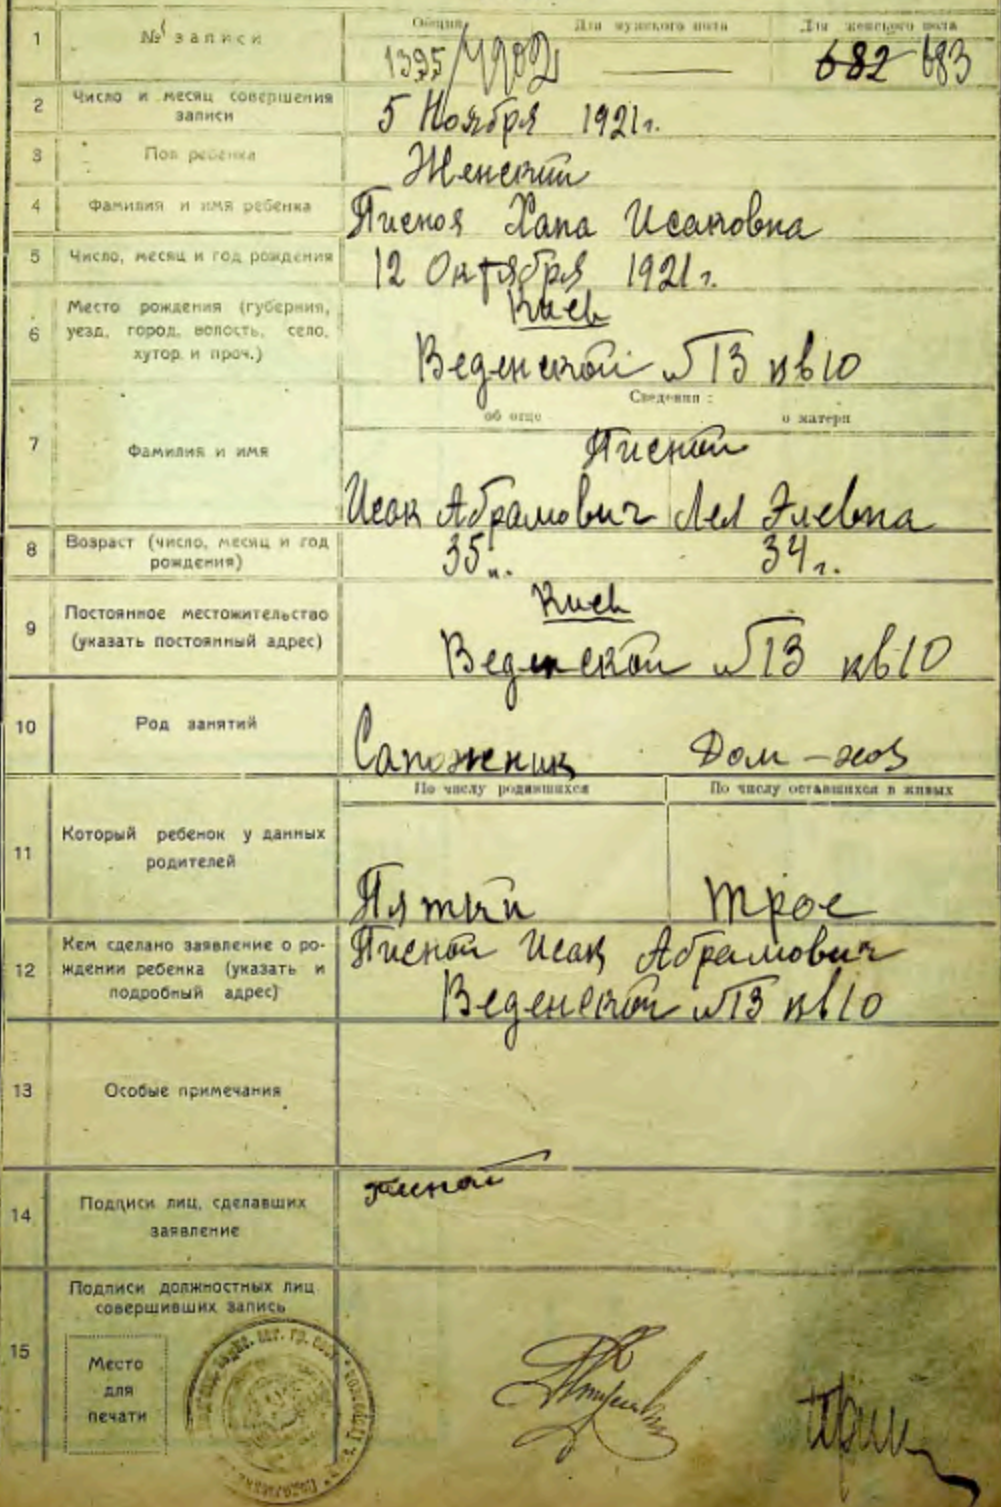 1 № записи
Общий Для мужского пола Для женского пола
1395/4902 682 683
2 Число и месяц совершения
записи
5 Ноября 1921г.
3 Пол ребенка
Женский
4 Фамилия и имя ребенка
Писноя Хана Исаковна
5 Число, месяц и год рождения
12 Октября 1921г.
6 Место рождения (губерния,
уезд, город, волость, село,
хутор и проч.)
Киев
Веденской №13 кв10
7 Фамилия и имя
Сведения:
об отце о матери
Писной
Исак Абрамович Лея Элевна
8 Возраст (число, месяц и год
рождения)
35 34г.
9 Постоянное местожительство
(указать постоянный адрес)
Киев
Веденской №13 кв10
10 Род занятий
Сапожник Дом-хоз
11 Который ребенок у данных
родителей
По числу родившихся По числу оставшихся в живых
Пятый трое
12 Кем сделано заявление о ро-
ждении ребенка (указать и
подробный адрес)
Писной Исак Абрамович
Веденской №13 кв10
13 Особые примечания
14 Подписи лиц, сделавших
заявление
писной
15 Подписи должностных лиц
совершивших запись
Место
для
печати